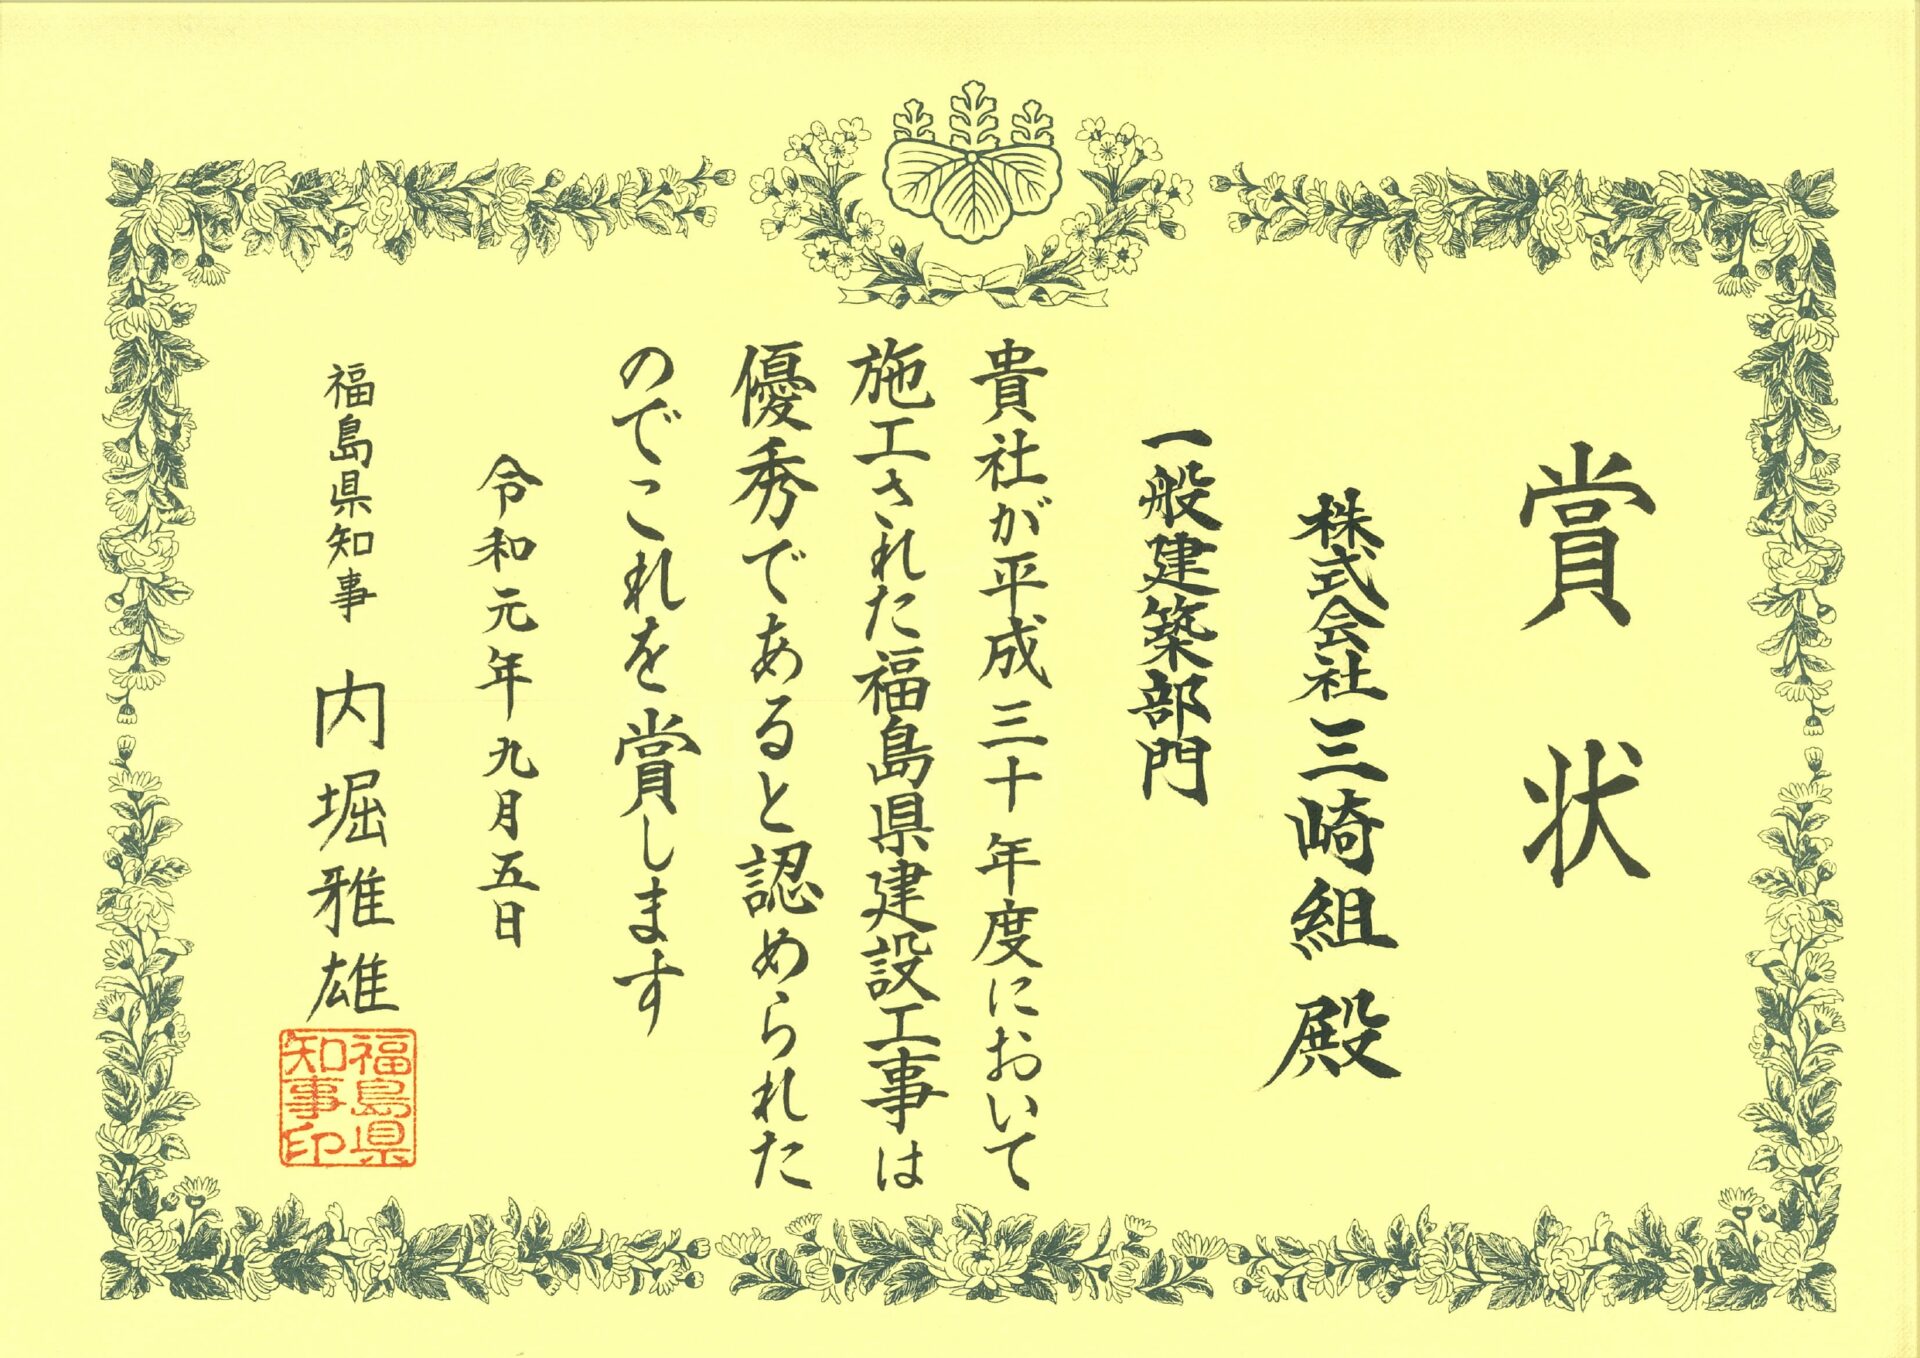 賞状
株式会社三崎組殿
一般建築部門
貴社が平成三十年度において
施工された福島県建設工事は
優秀であると認められた
のでこれを賞します
令和元年九月五日
福島県知事 内堀雅雄
福島県
知事印